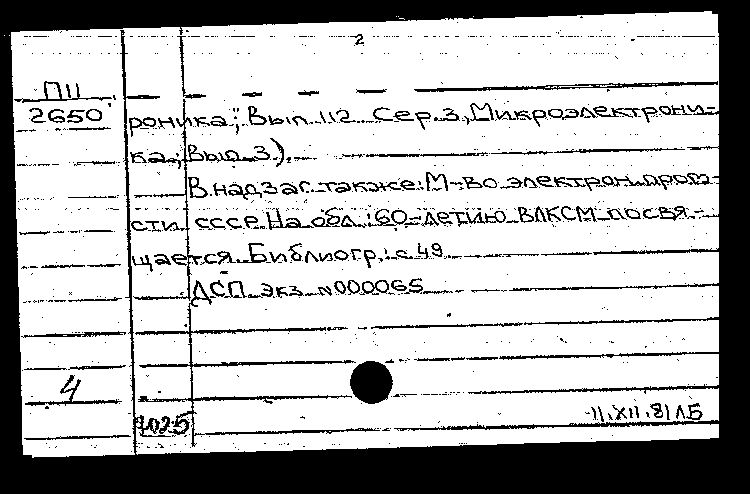 2
П11
2650
роника; Вып. 112. Сер. 3, Микроэлектрони-
ка; Вып. 3).
В надзаг. также: М-во электрон. пром-
сти СССР. На обл.: 60-летию ВЛКСМ посвя-
щается. Библиогр.: с. 49
ДСП. Экз. №000065
4
11.XII.81